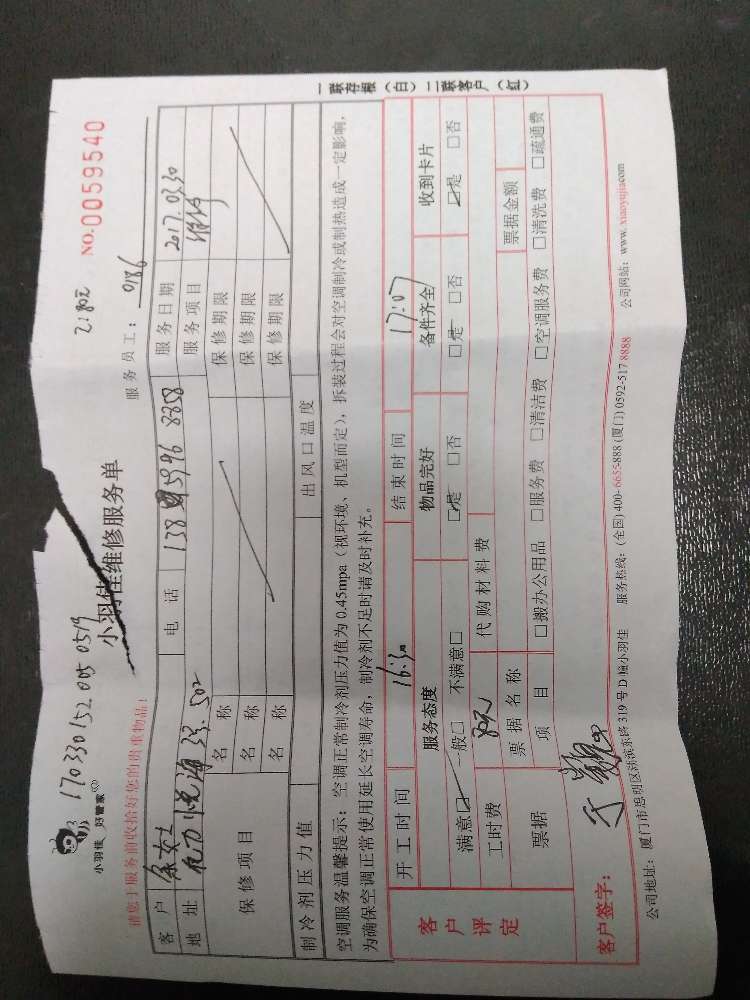 一联存根（白）二联客户（红）
170330152 005 0519
小羽佳 好管家
小羽佳维修服务单
NO.0059540
请您于服务前收拾好您的贵重物品！
服务员工：0186
客户 余女士 电话 138 5996 8858 服务日期 2017.03.30
地址 33.502 服务项目
保修项目 名称 保修期限
名称 保修期限
名称 保修期限
制冷剂压力值 出风口温度
空调服务温馨提示：空调正常制冷剂压力值为0.45mpa（视环境、机型而定），拆装过程会对空调制冷或制热造成一定影响，
为确保空调正常使用延长空调寿命，制冷剂不足时请及时补充。
客户评定
开工时间 16:30 结束时间 17:07
服务态度 物品完好 备件齐全 收到卡片
满意□ 一般□ 不满意□ □是 □否 □是 □否 □是 □否
工时费 80元 代购材料费
票据 票据名称 票据金额
项目 □搬办公用品 □服务费 □清洁费 □空调服务费 □清洗费 □疏通费
客户签字：
公司地址：厦门市思明区湖滨东路319号D幢小羽佳 服务热线：(全国) 400-6655-888 (厦门) 0592-517 8888 公司网站：www.xiaoyujia.com